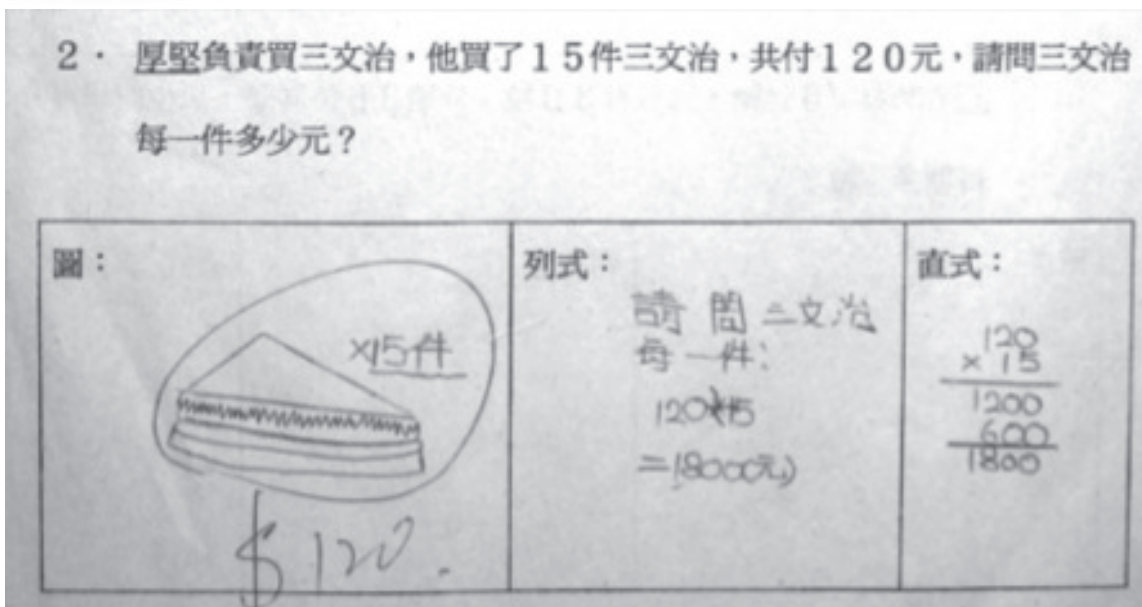 2． 厚堅負責買三文治，他買了15件三文治，共付120元，請問三文治
每一件多少元？
圖：
×15件
$120.
列式：
請問三文治
每一件：
120×15
=(8000元)
直式：
120
× 15
1200
600
1800